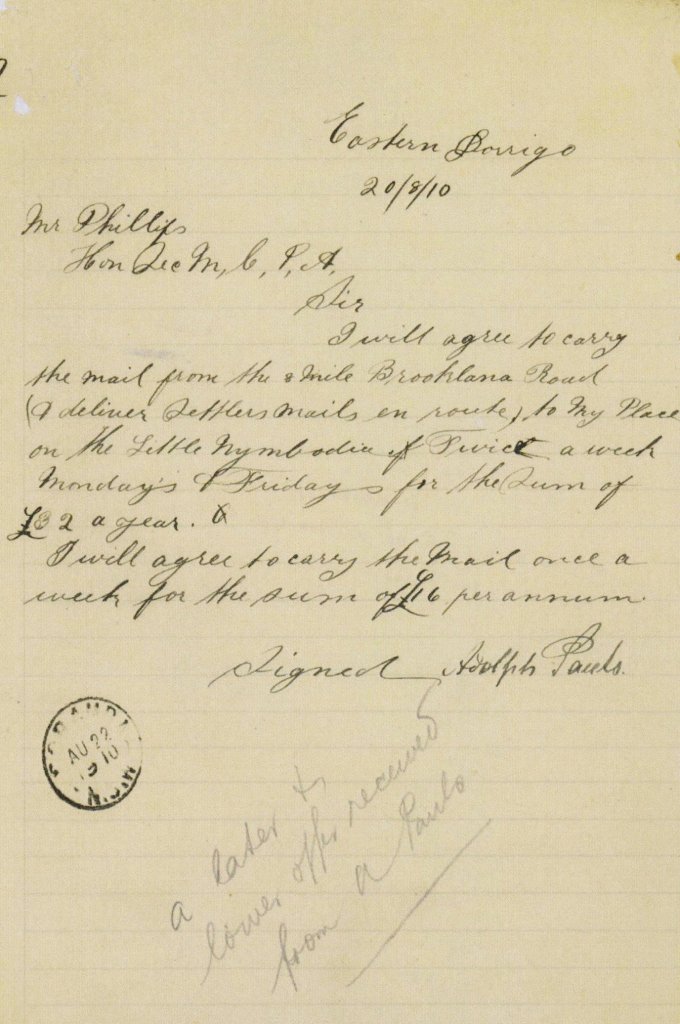 Eastern Dorrigo
20/8/10
Mr Phillips
Hon Sec M, C, P, A,
Sir
I will agree to carry
the mail from the 8 mile Brooklana Road
(& deliver Settlers mails en route) to My Place
on the Little Nymbodia Twice a week
Monday's & Fridays for the Sum of
£32 a year. &
I will agree to carry the Mail once a
week for the sum of £16 per annum.
Signed Adolph Pauls.
AU 22
10
a later &
lower offer received
from A Pauls